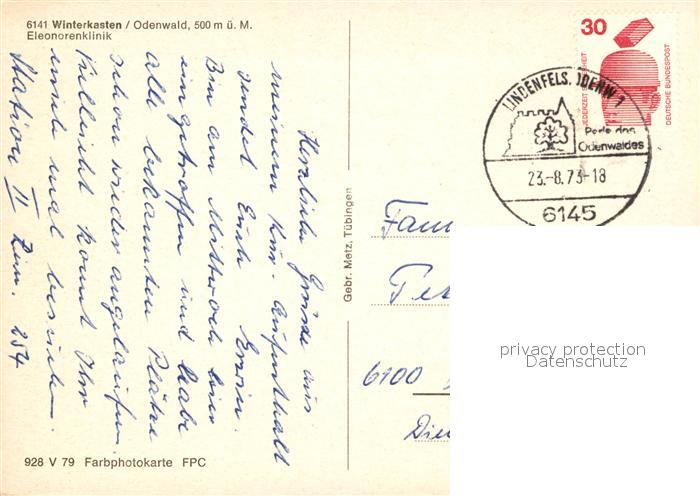 6141 Winterkasten / Odenwald, 500 m ü. M.
Eleonorenklinik
Herzliche Grüße aus
meinem Kur-Aufenthalt
sendet Euch Erwin.
Bin am Mittwoch hier
eingetroffen und habe
alle bekannten Plätze
schon wieder angelaufen.
Vielleicht kommt Ihr
mich mal besuchen.
Station II Zim. 254
928 V 79 Farbphotokarte FPC
Gebr. Metz, Tübingen
30
JEDERZEIT SICHERHEIT
DEUTSCHE BUNDESPOST
LINDENFELS, ODENW 1
Perle des
Odenwaldes
23.-8.73-18
6145
Fam
6100
Die
privacy protection
Datenschutz